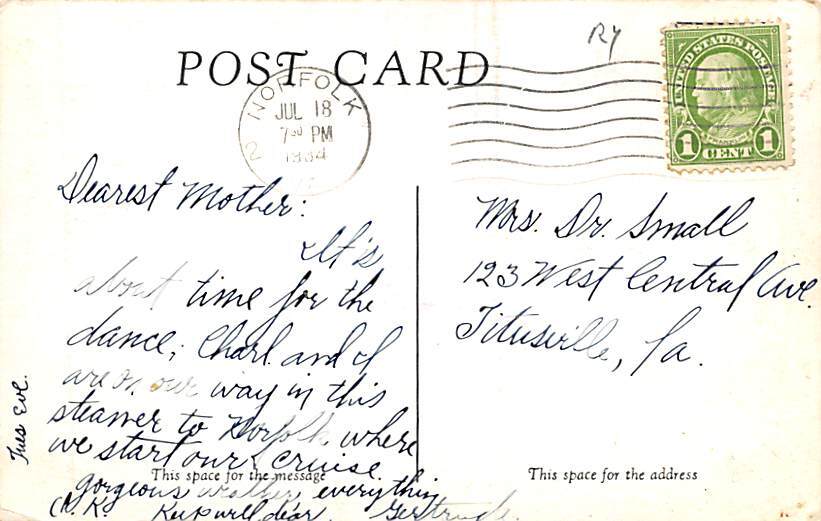 Ry
POST CARD
UNITED STATES POSTAGE
FRANKLIN
1 CENT 1
NORFOLK
JUL 18
7 30 PM
1934
2
Dearest Mother:
It's
about time for the
dance; Charl. and I
are on our way in this
steamer to Norfolk where
we start our cruise.
gorgeous weather, everything
O.K. Keep well dear. Gertrude.
Tues Eve.
This space for the message
Mrs. Dr. Small
123 West Central Ave.
Titusville, Pa.
This space for the address